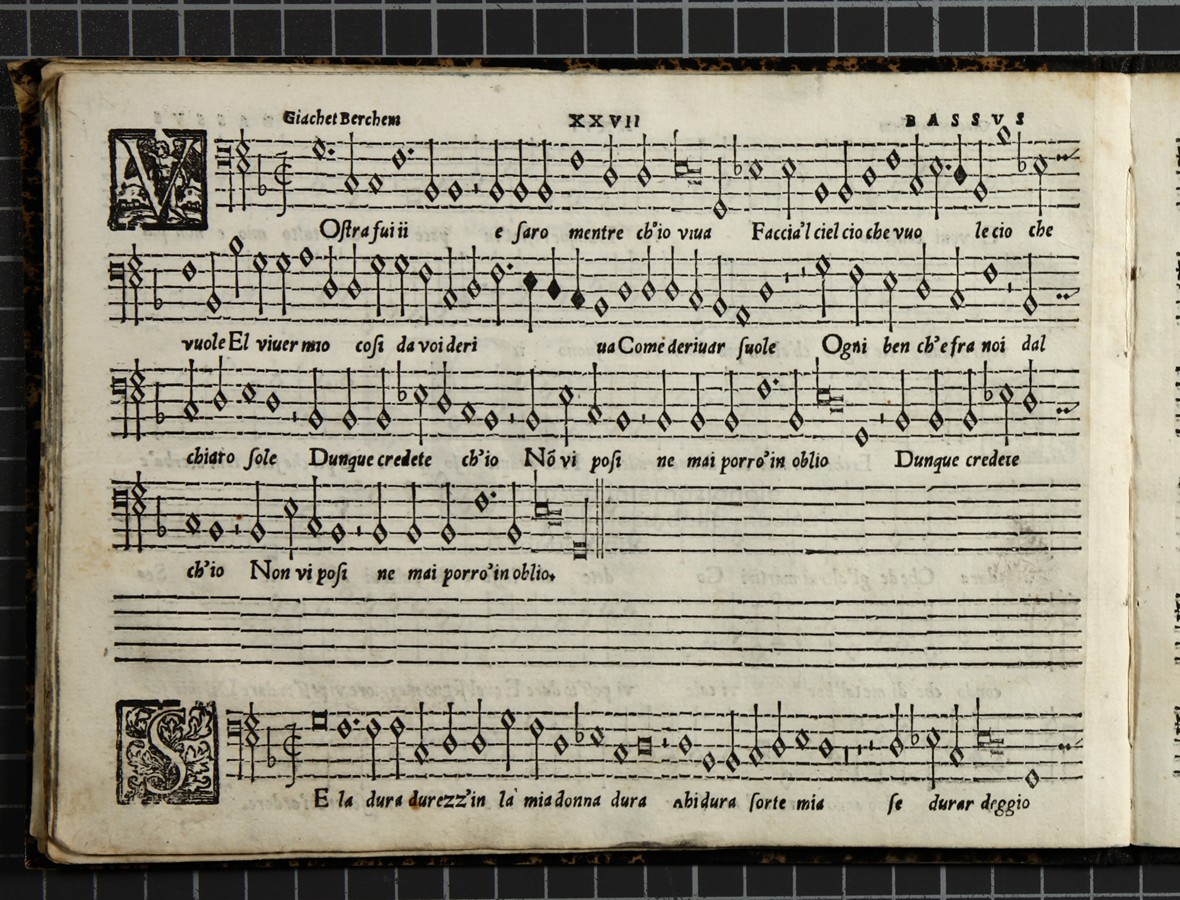 Giachet Berchem XXVII BASSVS
VOstra fui ii e saro mentre ch'io viua Faccia'l ciel cio che vuo le cio che
vuole El viuer mio cosi da voi deri ua Come deriuar suole Ogni ben ch'e fra noi dal
chiaro sole Dunque credete ch'io Nõ vi posi ne mai porro'in oblio Dunque credete
ch'io Non vi posi ne mai porro'in oblio.
SE la dura durezz'in la mia donna dura ahi dura sorte mia se durar deggio